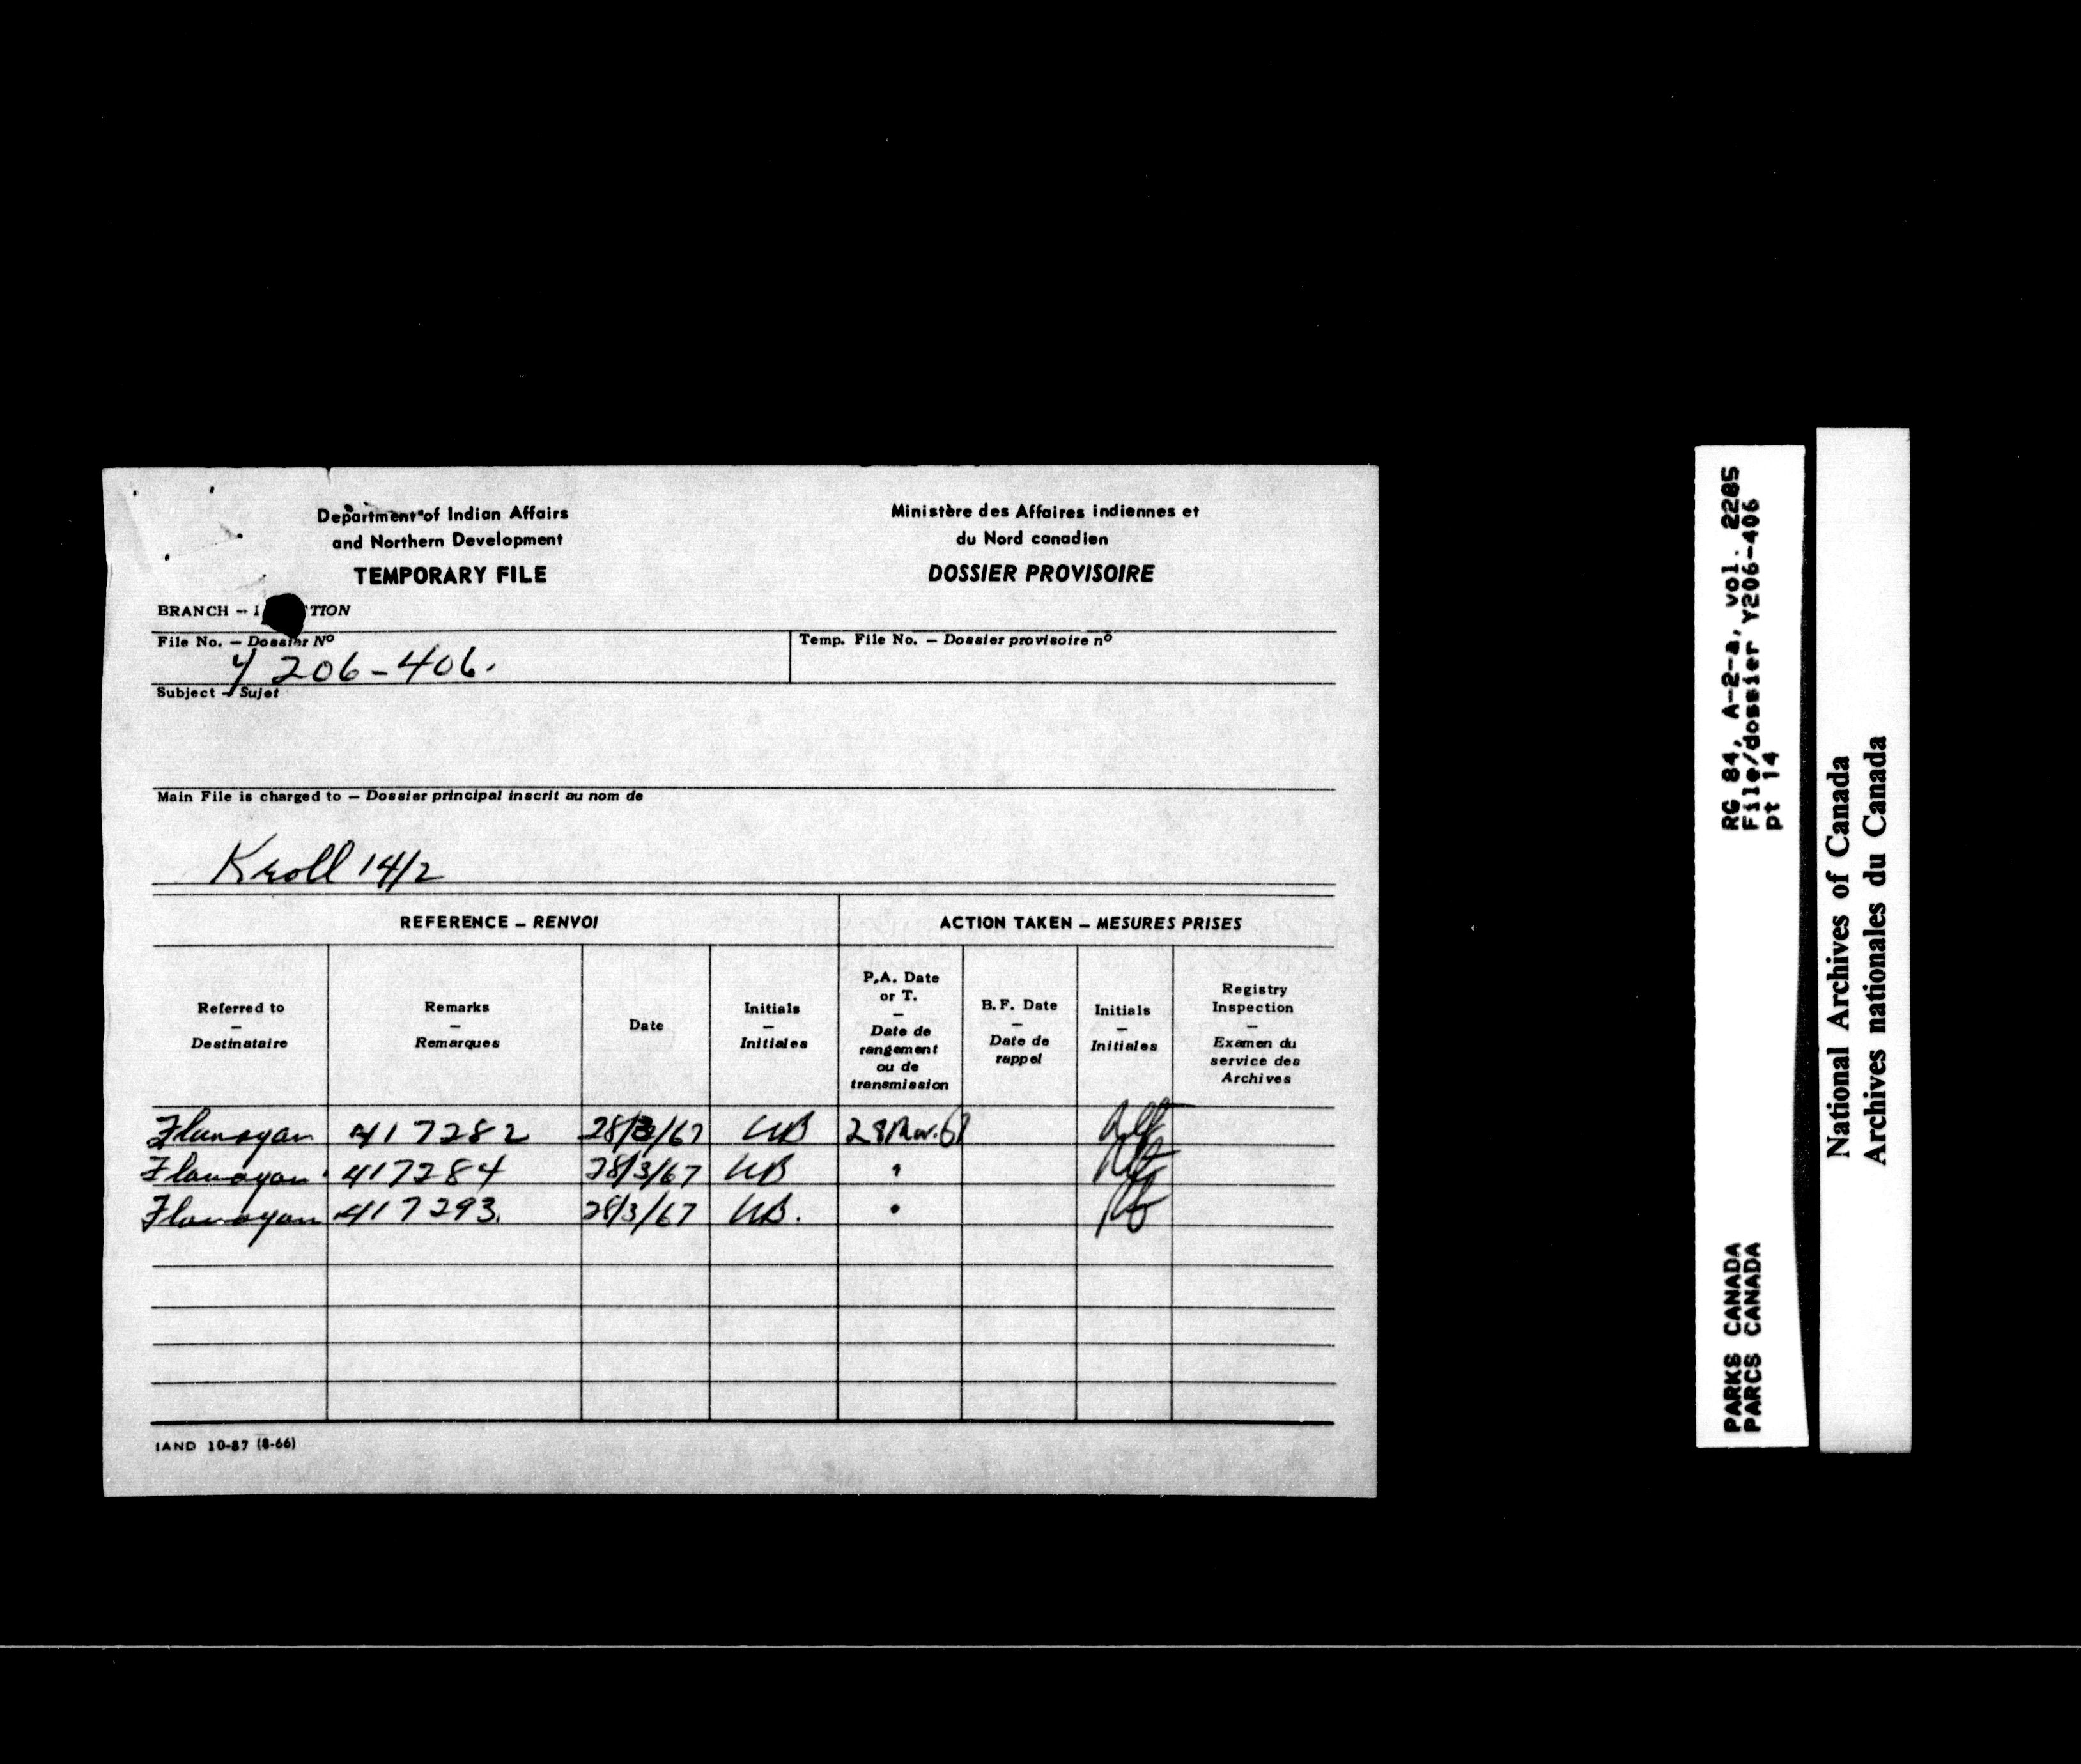 Department of Indian Affairs
and Northern Development
TEMPORARY FILE
Ministère des Affaires indiennes et
du Nord canadien
DOSSIER PROVISOIRE
BRANCH -- TION
File No. – Dossier Nº
Y 206-406.
Temp. File No. – Dossier provisoire nº
Subject – Sujet
Main File is charged to – Dossier principal inscrit au nom de
Kroll 14/2
REFERENCE – RENVOI
ACTION TAKEN – MESURES PRISES
Referred to – Destinataire
Remarks – Remarques
Date
Initials – Initiales
P.A. Date or T. – Date de rangement ou de transmission
B.F. Date – Date de rappel
Initials – Initiales
Registry Inspection – Examen du service des Archives
Flanagan 417282 28/3/67 28 Mar. 67
Flanagan 417284 28/3/67 "
Flanagan 417293. 28/3/67 "
IAND 10-87 (8-66)
RG 84, A-2-a, vol. 2285
File/dossier Y206-406
pt 14
PARKS CANADA
PARCS CANADA
National Archives of Canada
Archives nationales du Canada